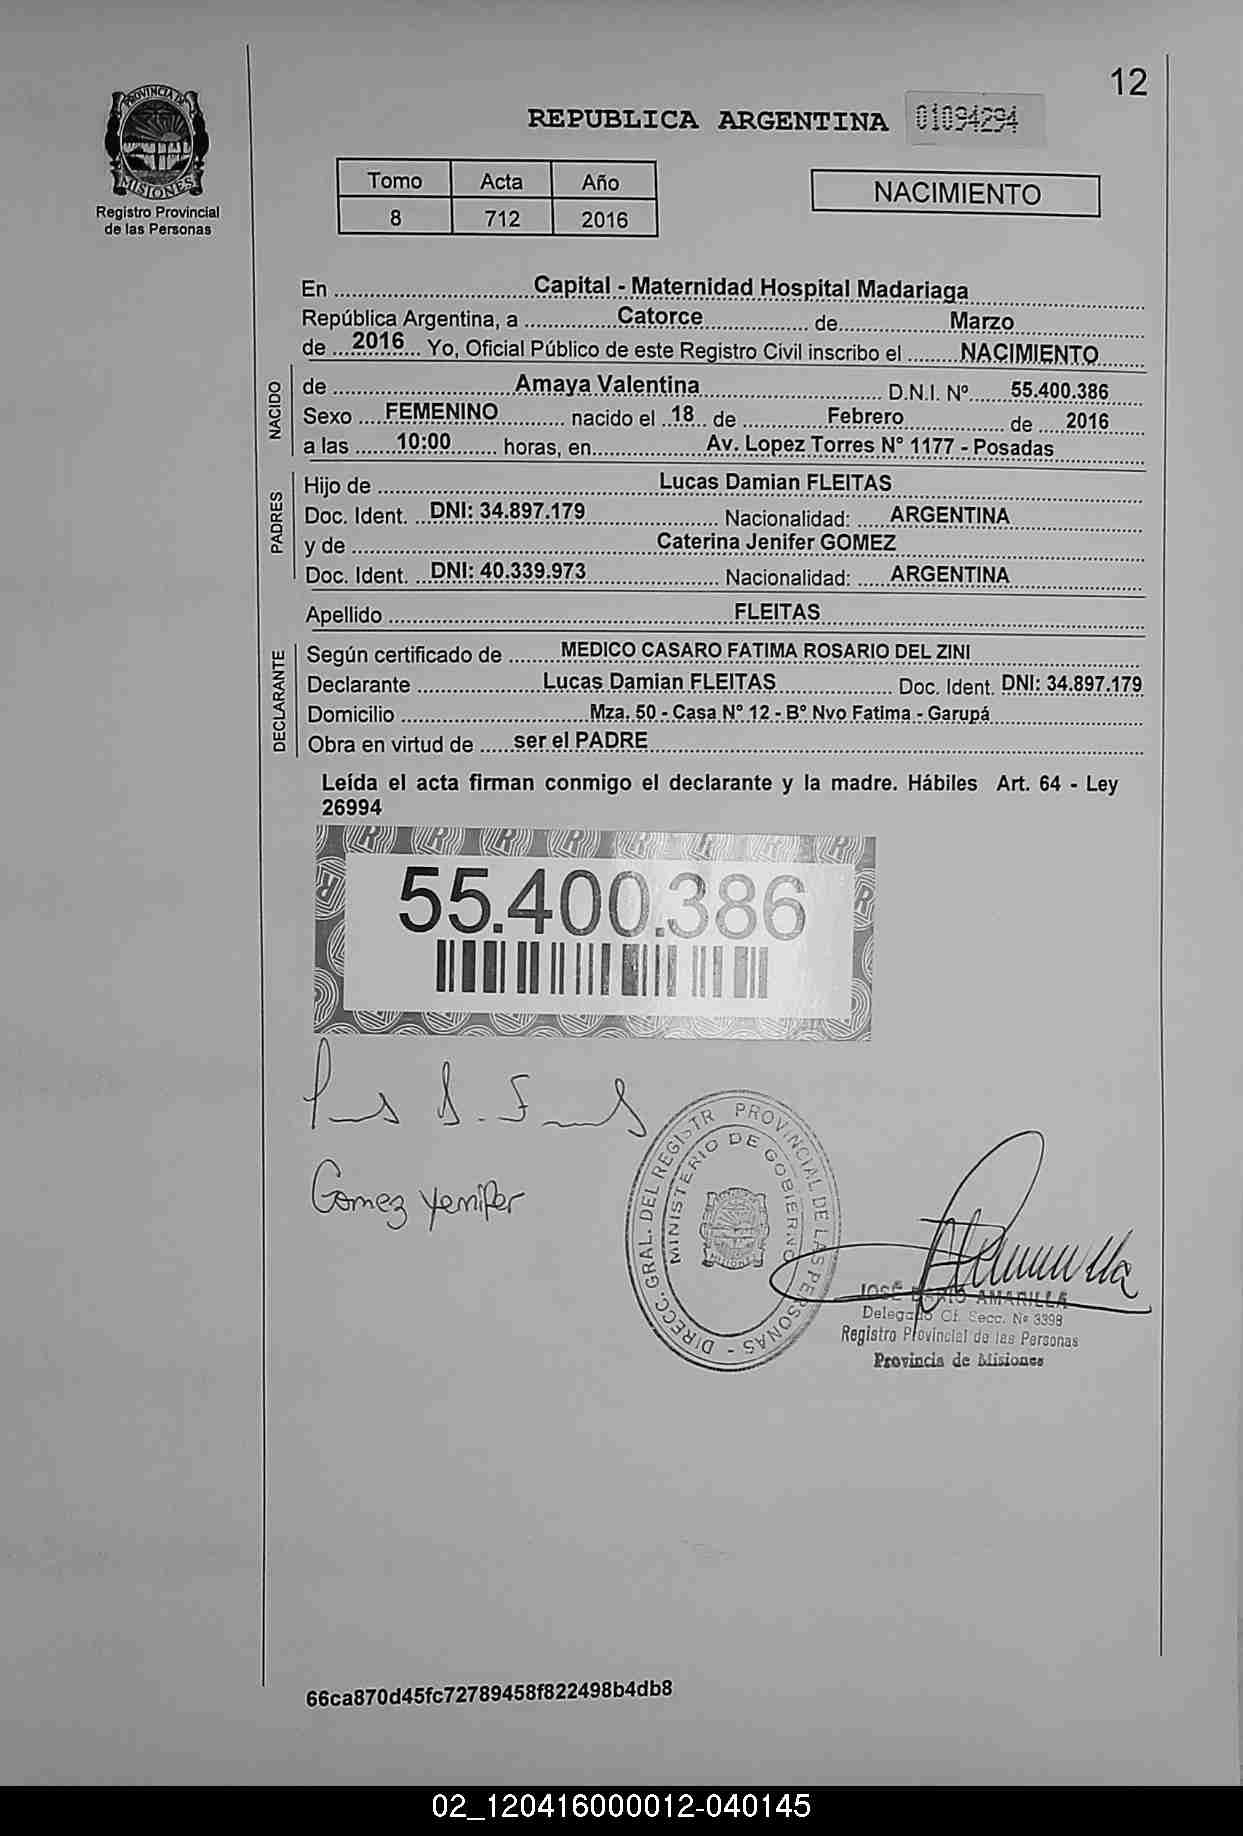 12
PROVINCIA DE
MISIONES
Registro Provincial
de las Personas
REPUBLICA ARGENTINA 01094294
Tomo Acta Año
8 712 2016
NACIMIENTO
En Capital - Maternidad Hospital Madariaga
República Argentina, a Catorce de Marzo
de 2016 Yo, Oficial Público de este Registro Civil inscribo el NACIMIENTO
NACIDO
de Amaya Valentina D.N.I. Nº 55.400.386
Sexo FEMENINO nacido el 18 de Febrero de 2016
a las 10:00 horas, en Av. Lopez Torres N° 1177 - Posadas
PADRES
Hijo de Lucas Damian FLEITAS
Doc. Ident. DNI: 34.897.179 Nacionalidad: ARGENTINA
y de Caterina Jenifer GOMEZ
Doc. Ident. DNI: 40.339.973 Nacionalidad: ARGENTINA
Apellido FLEITAS
DECLARANTE
Según certificado de MEDICO CASARO FATIMA ROSARIO DEL ZINI
Declarante Lucas Damian FLEITAS Doc. Ident. DNI: 34.897.179
Domicilio Mza. 50 - Casa N° 12 - B° Nvo Fatima - Garupá
Obra en virtud de ser el PADRE
Leída el acta firman conmigo el declarante y la madre. Hábiles Art. 64 - Ley
26994
55.400.386
Gomez Yenifer
DIRECC. GRAL. DEL REGISTR PROVINCIAL DE LAS PERSONAS
MINISTERIO DE GOBIERNO
MISIONES
JOSÉ DARIO AMARILLA
Delegado Of. Secc. Nº 3398
Registro Provincial de las Personas
Provincia de Misiones
66ca870d45fc72789458f822498b4db8
02_120416000012-040145